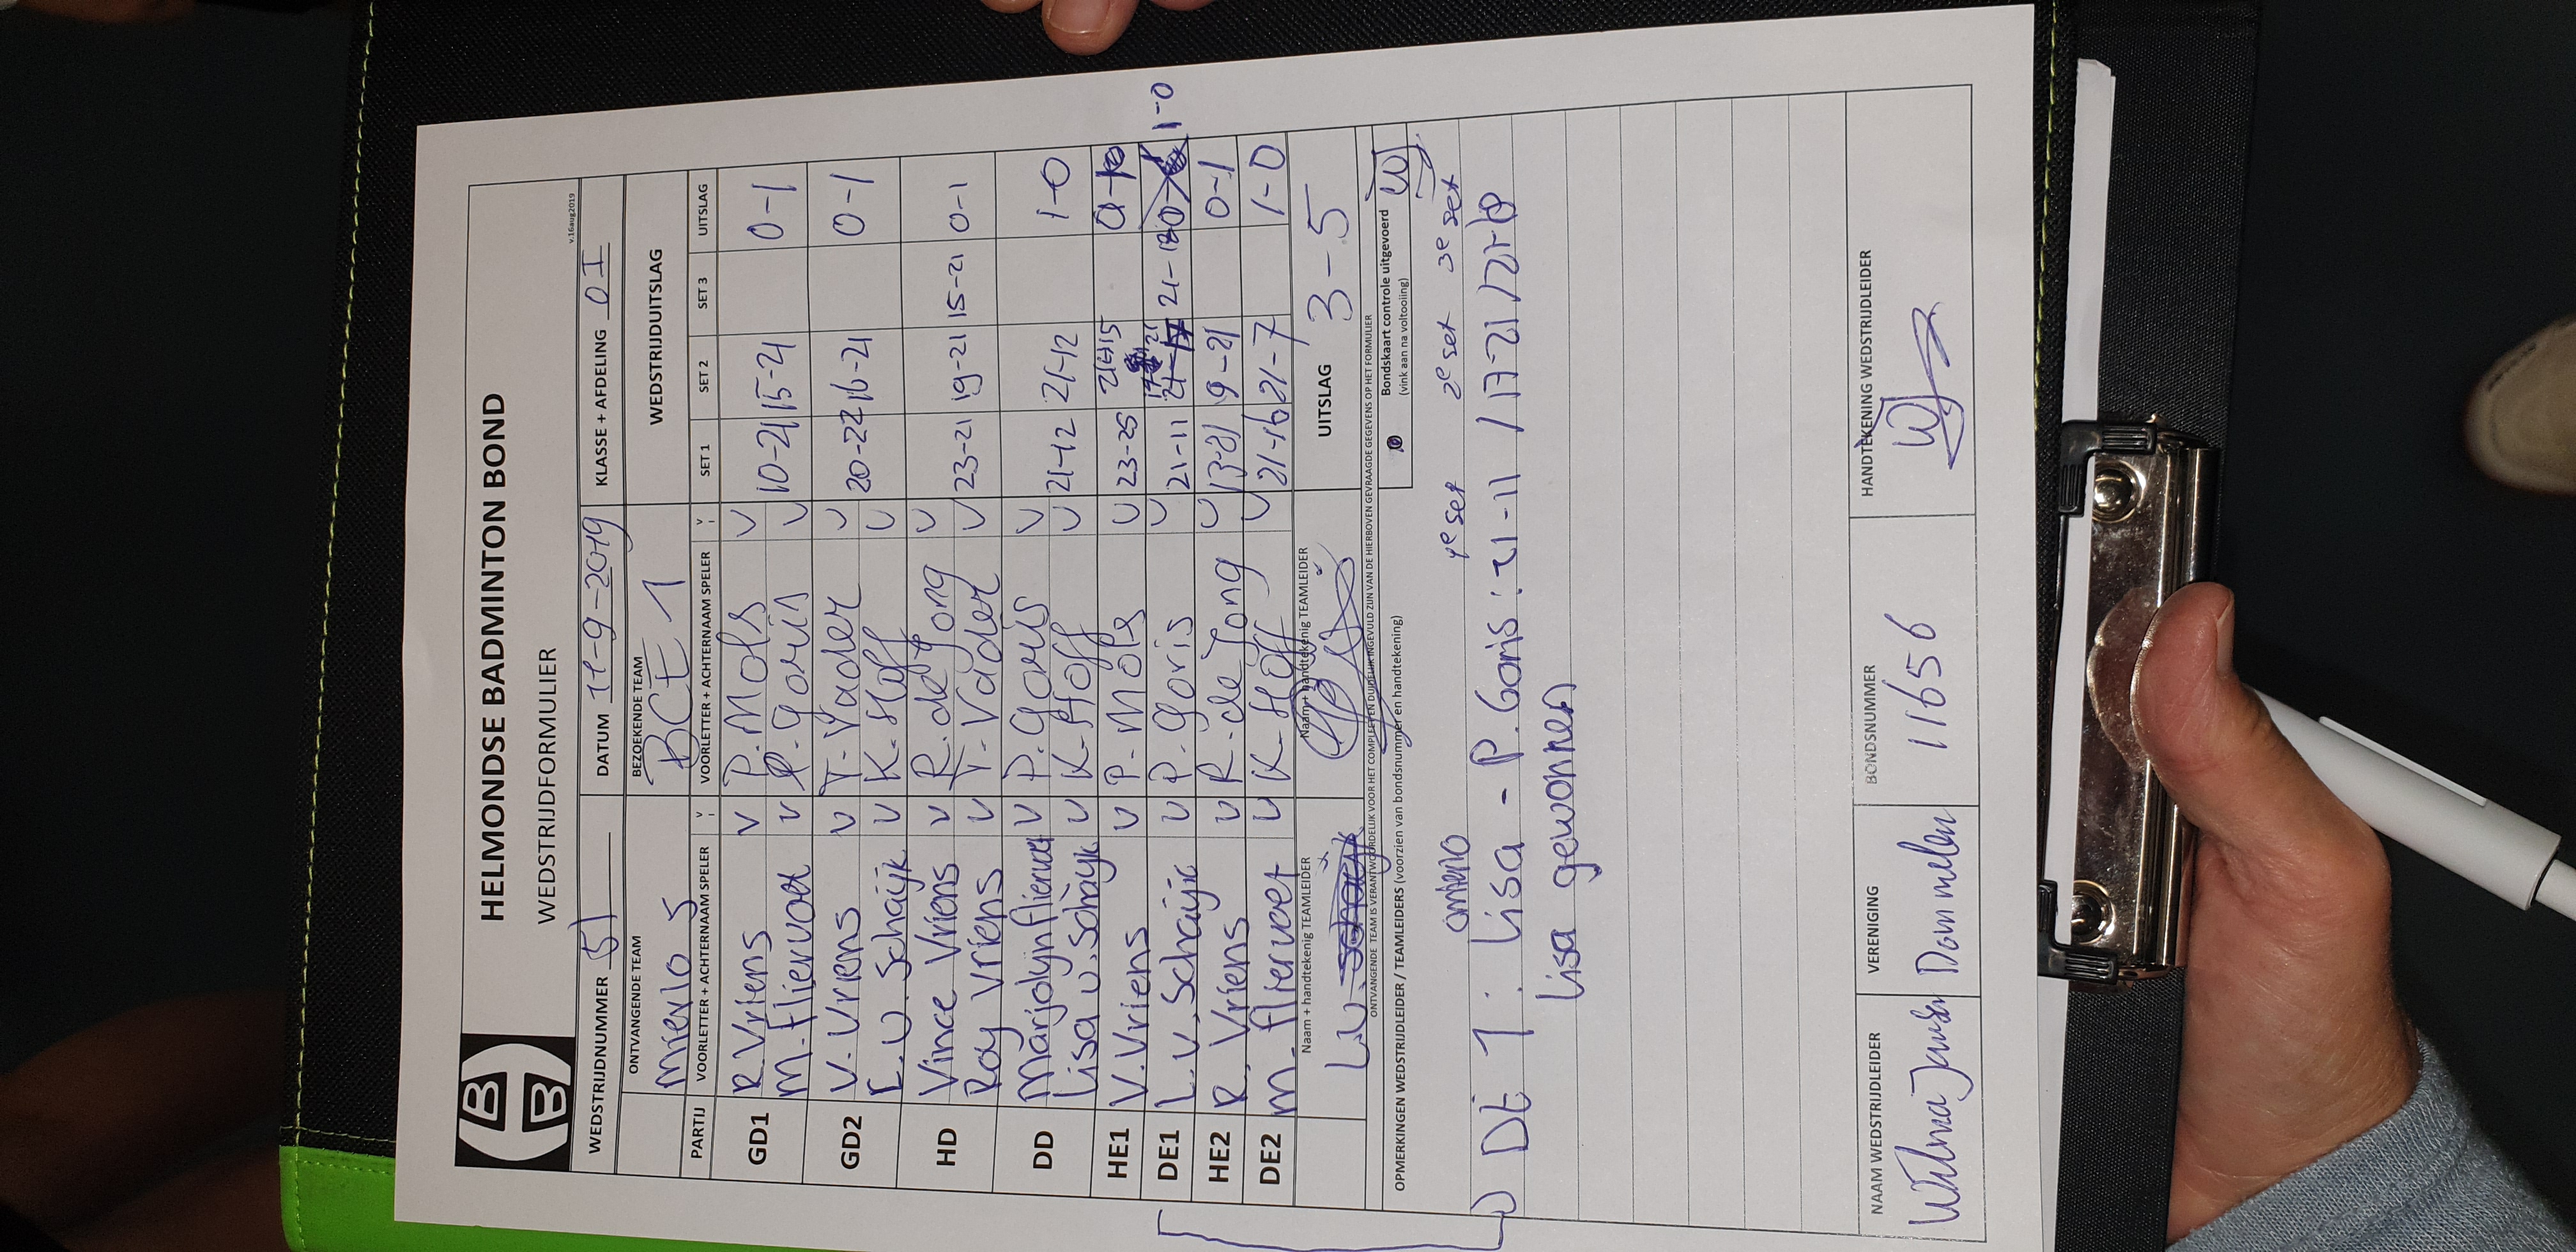 HELMONDSE BADMINTON BOND
WEDSTRIJDFORMULIER
v.16aug2019
WEDSTRIJDNUMMER 51 DATUM 11-9-2019 KLASSE + AFDELING 0I
ONTVANGENDE TEAM BEZOEKENDE TEAM WEDSTRIJDUITSLAG
Mierlo 5 BCE 1
PARTIJ VOORLETTER + ACHTERNAAM SPELER V VOORLETTER + ACHTERNAAM SPELER V SET 1 SET 2 SET 3 UITSLAG
GD1 R. Vriens V P. Mols V 10-21 15-21 0-1
M. Fliervoet V P. Goris V
GD2 V. Vriens V T. Vader V 20-22 16-21 0-1
L. v. Schaijk V K. Hoff V
HD Vince Vriens V R. de Jong V 23-21 19-21 15-21 0-1
Roy Vriens V T. Vader V
DD Marjolijn Fliervoet V P. Goris V 21-12 21-12 1-0
Lisa v. Schaijk V K. Hoff V
HE1 V. Vriens V P. Mols V 23-25 0-1
DE1 L. v. Schaijk V P. Goris V 21-11 21-18 1-0
HE2 R. Vriens V R. de Jong V 13-21 9-21 0-1
DE2 M. Fliervoet V K. Hoff V 21-16 21-7 1-0
Naam + handtekenig TEAMLEIDER Naam + handtekenig TEAMLEIDER UITSLAG 3-5
L.v. Schaijk
ONTVANGENDE TEAM IS VERANTWOORDELIJK VOOR HET COMPLEET EN DUIDELIJK INGEVULD ZIJN VAN DE HIERBOVEN GEVRAAGDE GEGEVENS OP HET FORMULIER
OPMERKINGEN WEDSTRIJDLEIDER / TEAMLEIDERS (voorzien van bondsnummer en handtekening)
Bondskaart controle uitgevoerd
(vink aan na voltooiing)
1e set 2e set 3e set
DE 1: Lisa - P. Goris: 21-11 / 17-21 / 21-18
Lisa gewonnen
NAAM WEDSTRIJDLEIDER VERENIGING BONDSNUMMER HANDTEKENING WEDSTRIJDLEIDER
Wilma Jansen Dommelen 11656